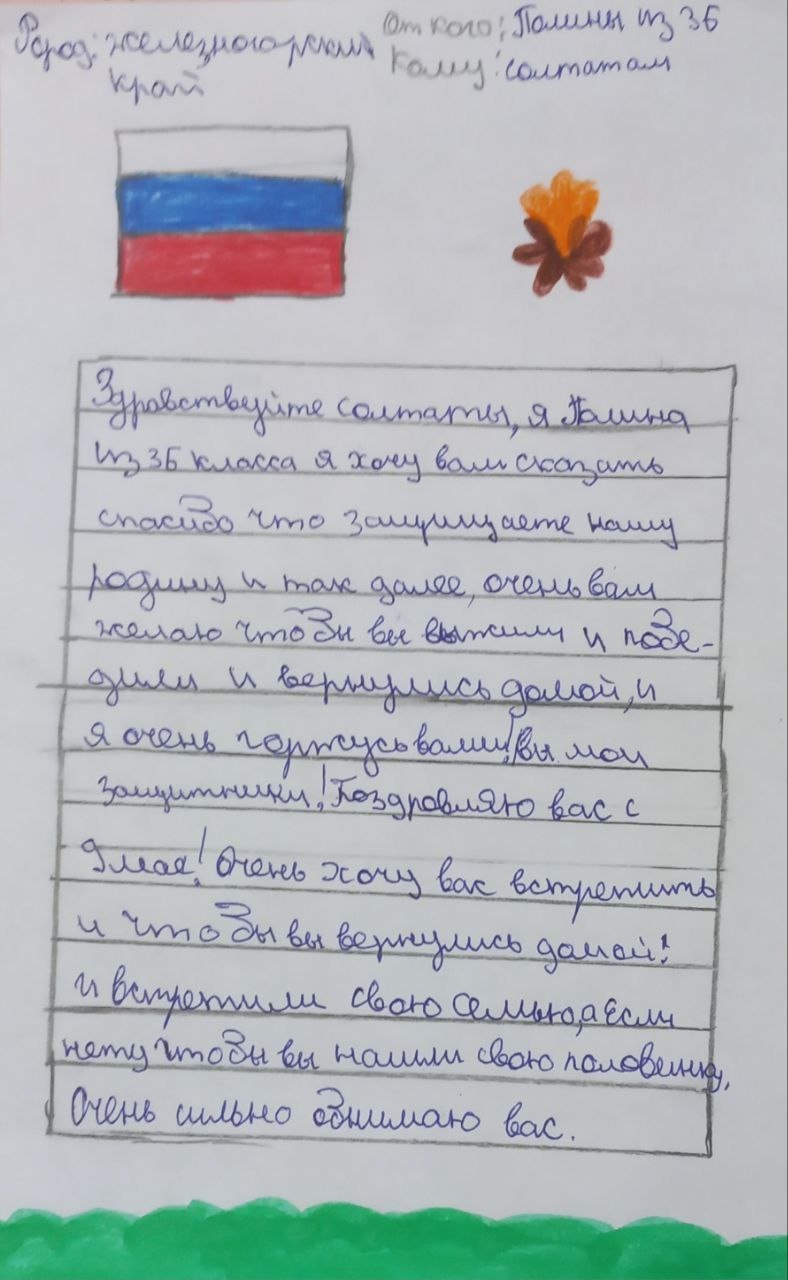 Город: железногорский
край
От кого: Полины из 3Б
Кому: солтатам
Здравствуйте солтаты, я Полина
из 3Б класса я хочу вам сказать
спасибо что защищаете нашу
родину и так далее, очень вам
желаю чтобы вы выжили и побе-
дили и вернулись домой, и
я очень горжусь вами! Вы мои
защитники! Поздровляю вас с
9 мая! Очень хочу вас встретить
и чтобы вы вернулись домой!
и встретили свою семью, а если
нету чтобы вы нашли свою половинку.
Очень сильно обнимаю вас.